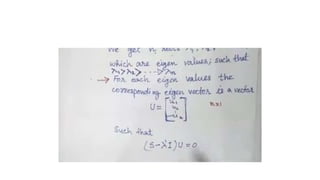 We get n
which are eigen values; such that
λ₁>λ₂> ...... >λn
→ For each eigen values the
corresponding eigen vector is a vector
U = [u₁ u₂ un] n×1
Such that
(S-λI)U=0